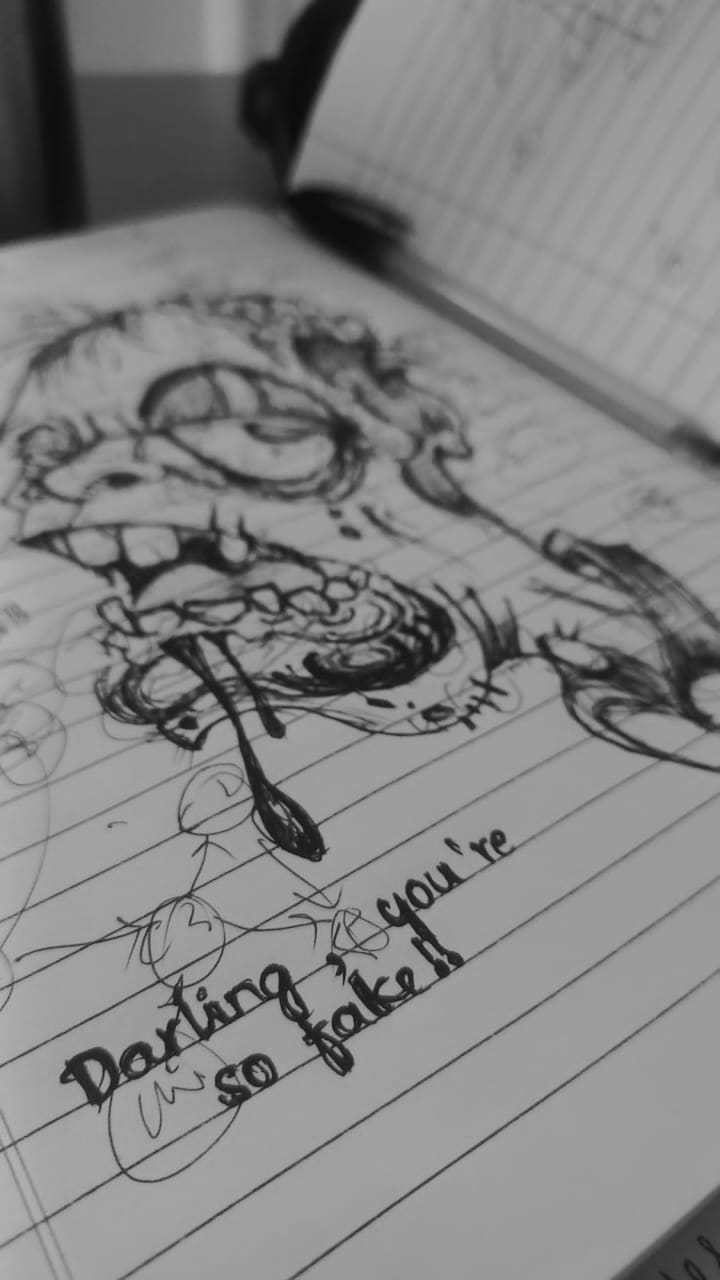 Darling, you're
so fake!!